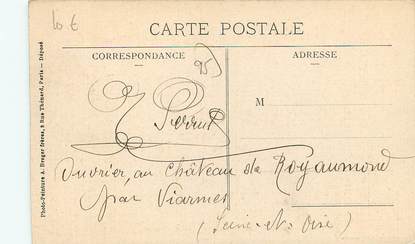 10 €
CARTE POSTALE
CORRESPONDANCE
95
ADRESSE
M
Ouvrier, au Château de Royaumond
par Viarmes
(Seine-et-Oise)
Photo-Peinture A. Breger frères, 9 Rue Thénard, Paris — Déposé